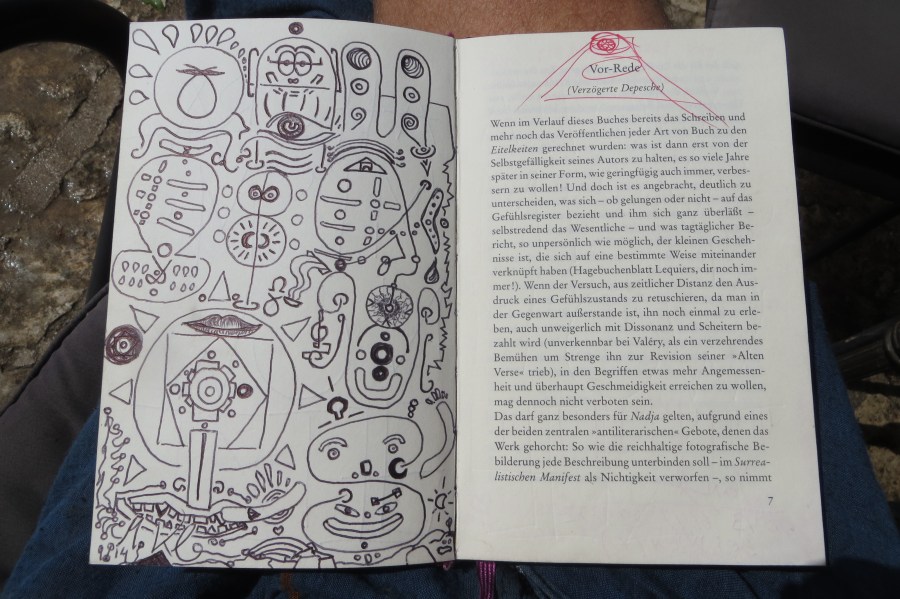 Vor-Rede
(Verzögerte Depesche)
Wenn im Verlauf dieses Buches bereits das Schreiben und
mehr noch das Veröffentlichen jeder Art von Buch zu den
Eitelkeiten gerechnet wurden: was ist dann erst von der
Selbstgefälligkeit seines Autors zu halten, es so viele Jahre
später in seiner Form, wie geringfügig auch immer, verbes-
sern zu wollen! Und doch ist es angebracht, deutlich zu
unterscheiden, was sich – ob gelungen oder nicht – auf das
Gefühlsregister bezieht und ihm sich ganz überläßt –
selbstredend das Wesentliche – und was tagtäglicher Be-
richt, so unpersönlich wie möglich, der kleinen Gescheh-
nisse ist, die sich auf eine bestimmte Weise miteinander
verknüpft haben (Hagebuchenblatt Lequiers, dir noch im-
mer!). Wenn der Versuch, aus zeitlicher Distanz den Aus-
druck eines Gefühlszustands zu retuschieren, da man in
der Gegenwart außerstande ist, ihn noch einmal zu erle-
ben, auch unweigerlich mit Dissonanz und Scheitern be-
zahlt wird (unverkennbar bei Valéry, als ein verzehrendes
Bemühen um Strenge ihn zur Revision seiner »Alten
Verse« trieb), in den Begriffen etwas mehr Angemessen-
heit und überhaupt Geschmeidigkeit erreichen zu wollen,
mag dennoch nicht verboten sein.
Das darf ganz besonders für Nadja gelten, aufgrund eines
der beiden zentralen »antiliterarischen« Gebote, denen das
Werk gehorcht: So wie die reichhaltige fotografische Be-
bilderung jede Beschreibung unterbinden soll – im Surrea-
listischen Manifest als Nichtigkeit verworfen –, so nimmt
7